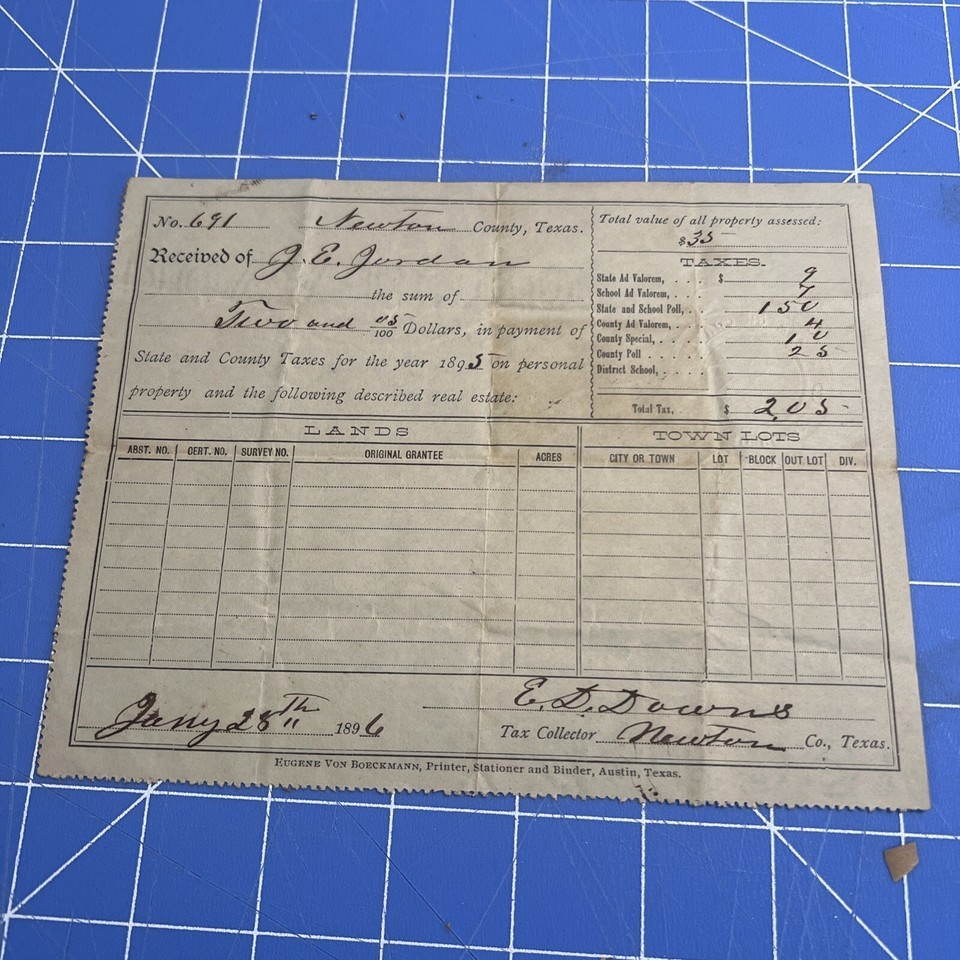 No. 691 Newton County, Texas.
Received of J. E. Jordan
the sum of
Two and 05/100 Dollars, in payment of
State and County Taxes for the year 1895 on personal
property and the following described real estate:
Total value of all property assessed:
$35
TAXES.
State Ad Valorem, . . . $ 9
School Ad Valorem, . . . 7
State and School Poll, . . 1 50
County Ad Valorem, . . . 4
County Special, . . . . 10
County Poll . . . . . 25
District School, . . . .
Total Tax, $ 2.05
LANDS
TOWN LOTS
ABST. NO. CERT. NO. SURVEY NO. ORIGINAL GRANTEE ACRES CITY OR TOWN LOT BLOCK OUT LOT DIV.
Jany 28th 1896
E. D. Downs
Tax Collector Newton Co., Texas.
EUGENE VON BOECKMANN, Printer, Stationer and Binder, Austin, Texas.